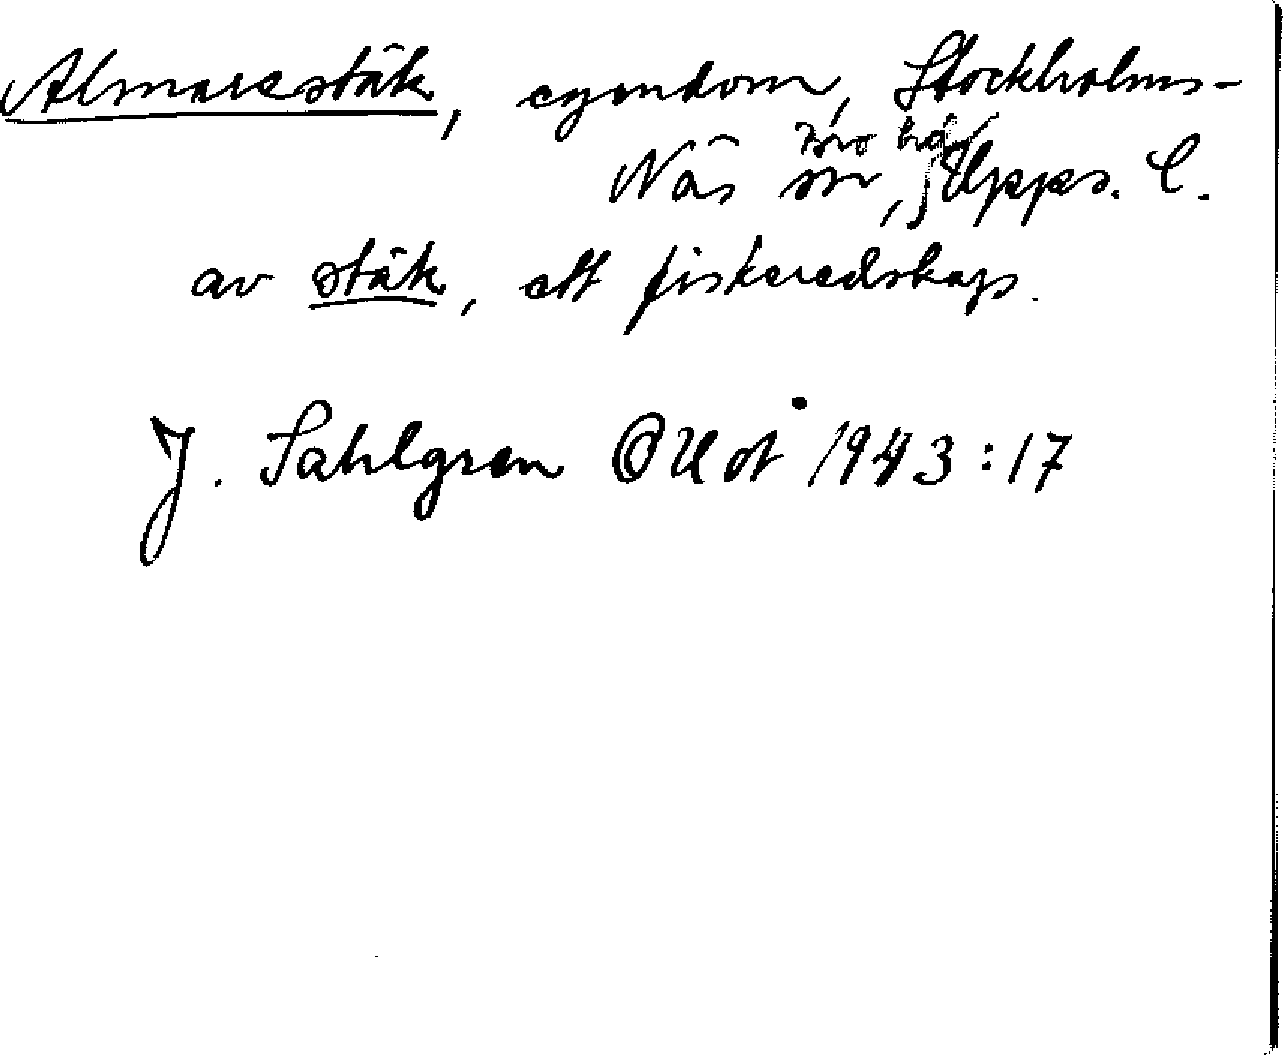 Almarestäk, egendom, Stockholms-
Bro hd
Näs sn, Upps. l.
av stäk, ett fiskeredskap.
J. Sahlgren OUoÅ 1943:17